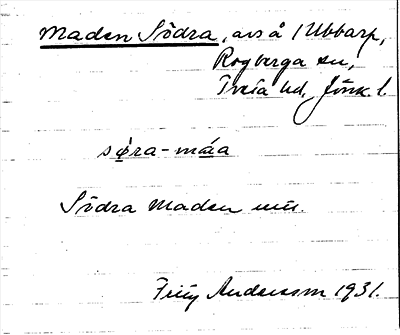 Maden Södra, avs å 1 Ubbarp,
Rogberga sn,
Tveta hd, Jönk. l.
sø̀ra-máa
Södra Maden uu.
Andersson 1931.